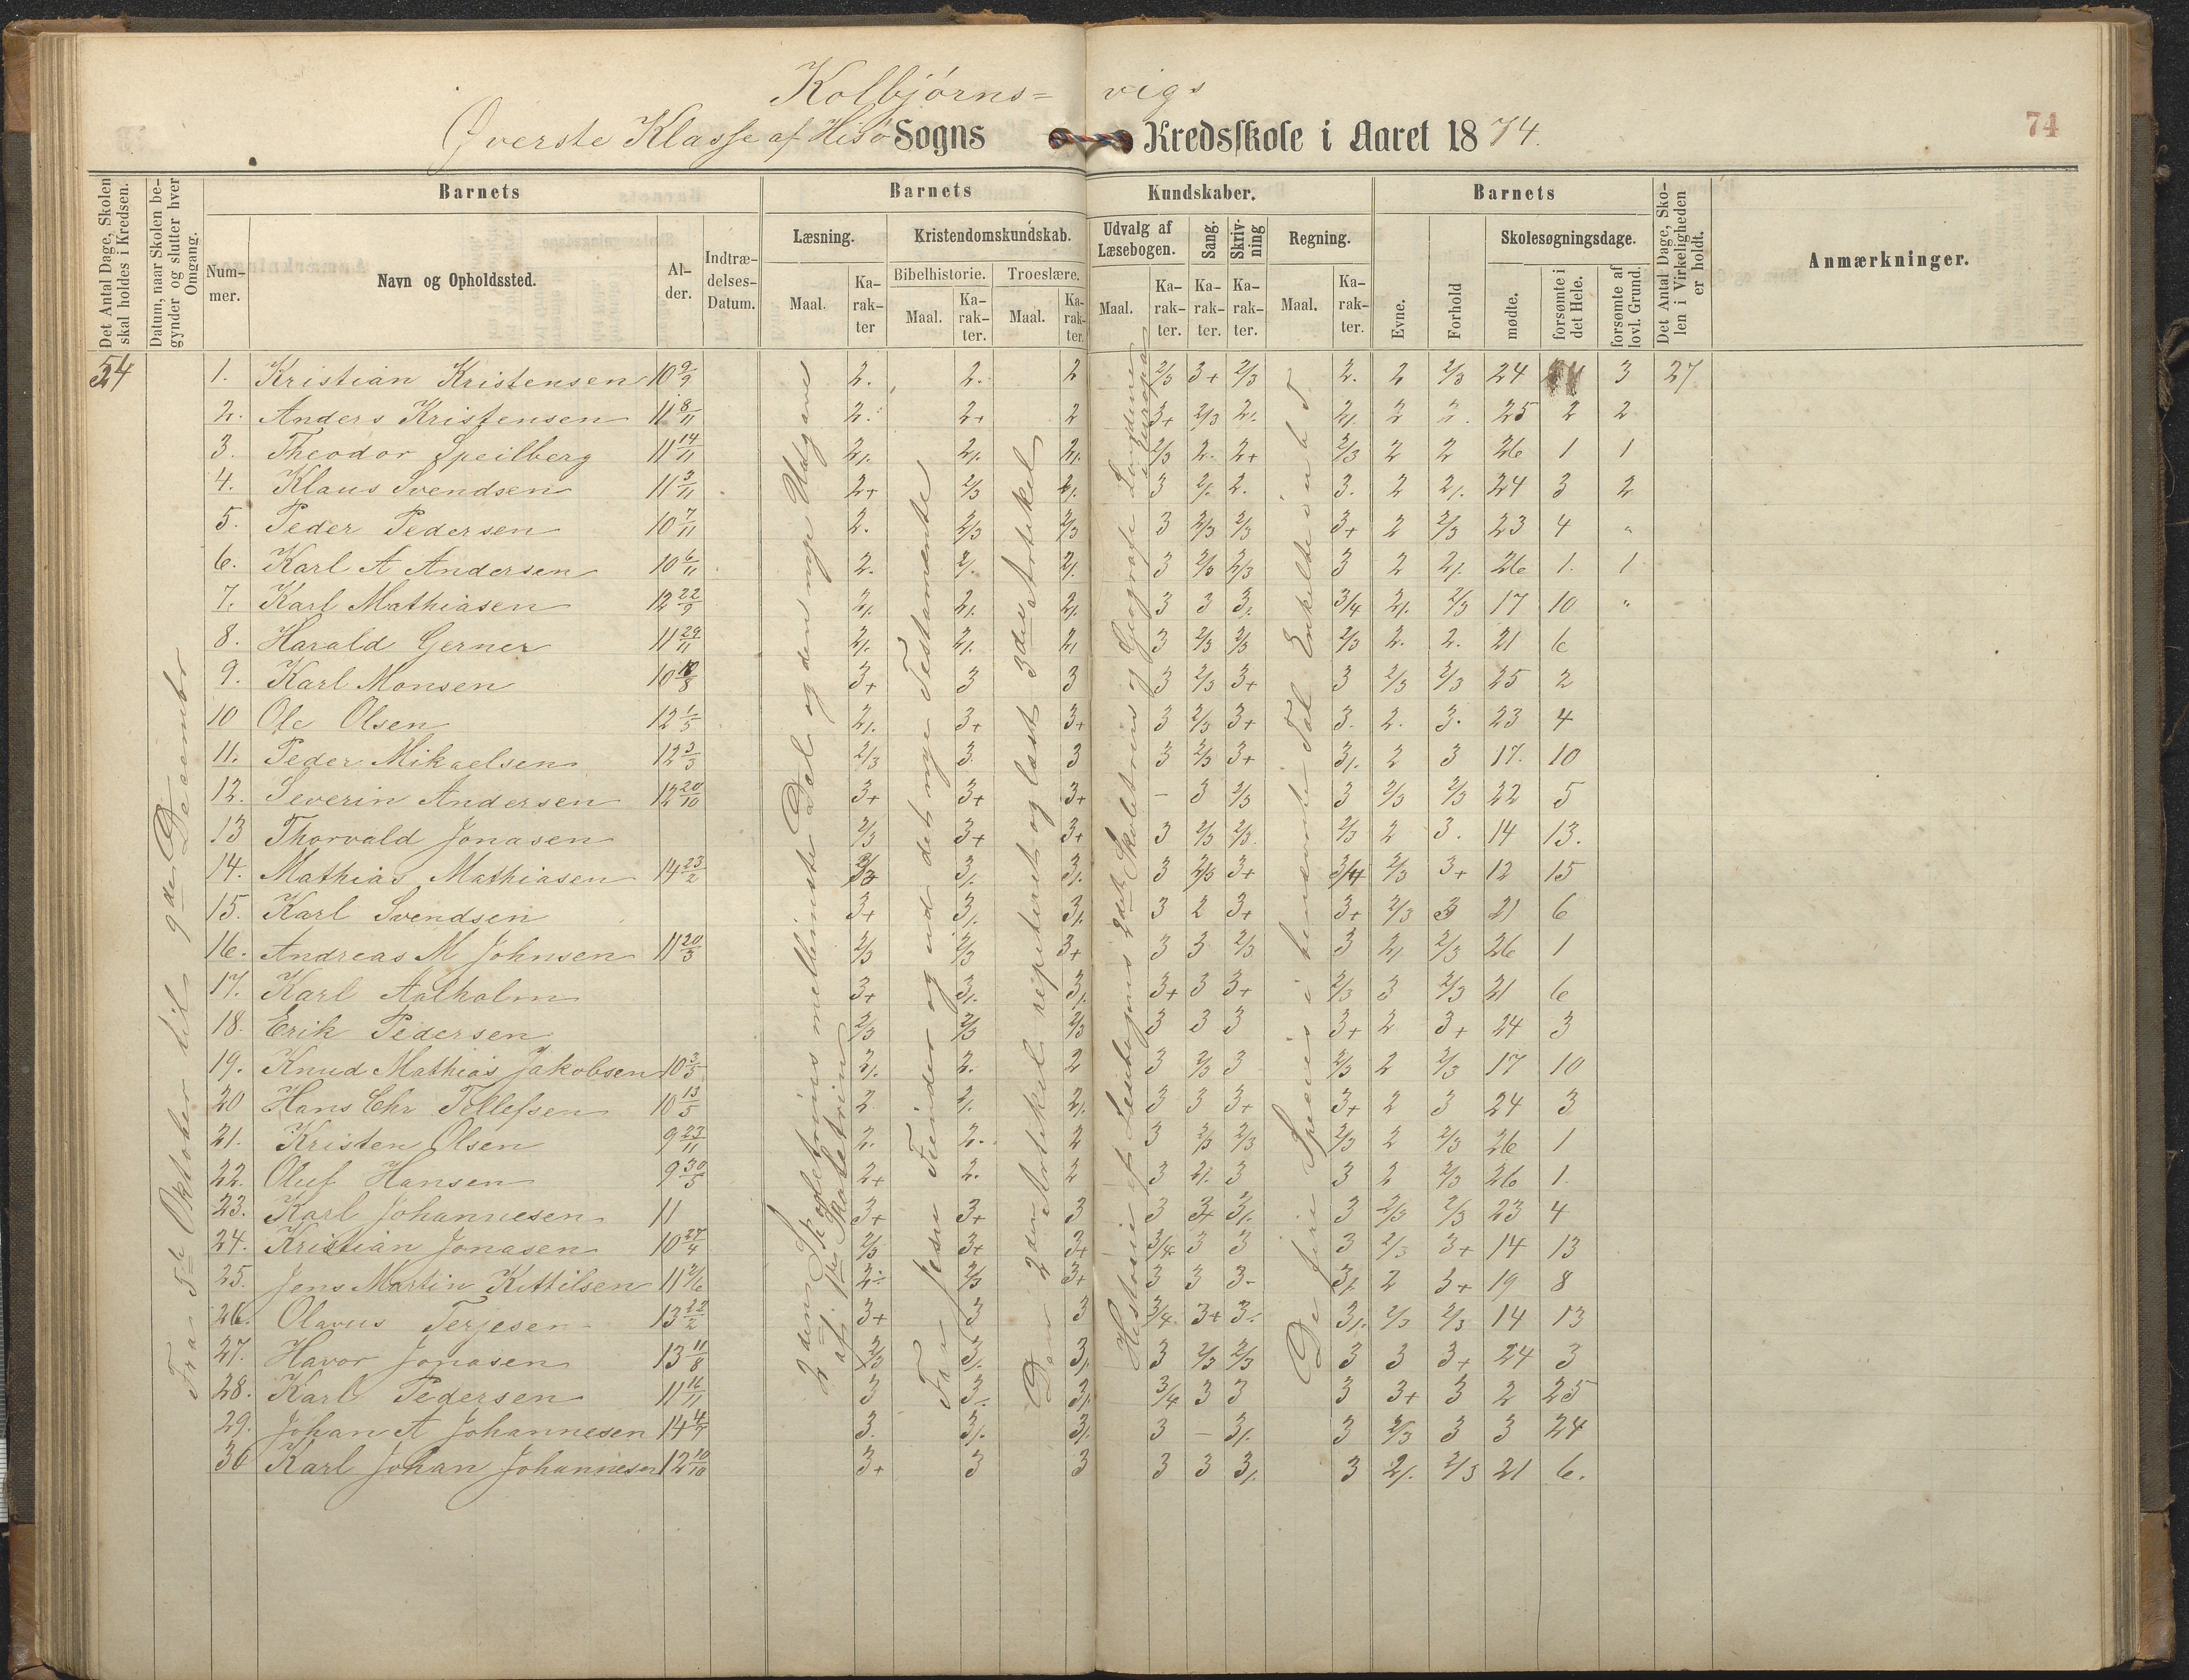 Kolbjørns= vigs
Øverste Klasse af Hisø Sogns Kredsskole i Aaret 1874.
74
Det Antal Dage, Skolen skal holdes i Kredsen.
Datum, naar Skolen begynder og slutter hver Omgang.
Barnets
Barnets Kundskaber.
Barnets
Det Antal Dage, Skolen i Virkeligheden er holdt.
Anmærkninger.
Nummer.
Navn og Opholdssted.
Alder.
Indtrædelses-Datum.
Læsning.
Kristendomskundskab.
Udvalg af Læsebogen.
Sang.
Skrivning
Regning.
Evne.
Forhold
Skolesøgningsdage.
Bibelhistorie.
Troeslære.
Maal.
Karakter
Maal.
Karakter.
Maal.
Karakter.
Maal.
Karakter.
Karakter.
Karakter.
Maal.
Karakter.
mødte.
forsømte i det Hele.
forsømte af lovl. Grund.
54
Fra 5te Oktober til 9de December
2den Skoletrins mellemste Del og den nye Udgave
af 1ste Skoletrin
Fra Jesu Fiender og ud det nye Testamente
Den 2den Artikel repeteret og læst 3die Artikel
Historie af Læsebogens 2det Skoletrin og Geografi Landene
i Europa
De fire Species i benævnte Tal
1. Kristian Kristensen 10 9/9 2. 2. 2 2/3 3+ 2/3 2. 2 2/3 24 3 27
2. Anders Kristensen 11 8/11 2. 2+ 2 3+ 2/3 2/. 2/. 2 2. 25 2 2
3. Theodor Speilberg 11 14/11 2/. 2/. 2/. 2/3 2. 2+ 2/3 2 2 26 1 1
4. Klaus Svendsen 11 3/11 2+ 2/3 2/. 3 2/. 2. 3. 2 2/. 24 3 2
5. Peder Pedersen 10 7/11 2. 2/3 2/3 3 2/3 2/3 3+ 2 2/3 23 4 "
6. Karl A Andersen 10 6/11 2. 2/. 2/. 3 2/3 2/3 3 2 2/. 26 1. 1
7. Karl Mathiasen 12 22/9 2/. 2/. 2/. 3 3 3/. 3/4 2/. 2/3 17 10 "
8. Harald Gerner 11 29/11 2/. 2/. 2/. 3 2/3 2/3 2/3 2. 2. 21 6
9. Karl Monsen 10 3+ 3 3 3 2/3 3+ 3 2/3 2/3 25 2
10 Ole Olsen 12 1/5 2/. 3+ 3+ 3 2/3 3+ 3. 2. 3. 23 4
11. Peder Mikaelsen 12 3/3 2/3 3 3 3 2/3 3+ 3/. 2 3 17. 10
12. Severin Andersen 12 20/10 3+ 3+ 3+ - 3 2/3 3 2/3 2/3 22 5
13 Thorvald Jonasen 2/3 3+ 3+ 3 2/3 2/3 2/3 2 3. 14 13.
14. Mathias Mathiasen 14 23/2 3/. 3/. 3 2/3 3+ 3/4 2/3 3+ 12 15
15. Karl Svendsen 3+ 3/. 3/. 3 2 3+ 3+ 2/3 3 21 6
16. Andreas M Johnsen 11 20/3 2/3 2/3 3+ 3 3 2/3 3 2/. 2/3 26 1
17. Karl Aalholm 3+ 3/. 3/. 3+ 3 3+ 2/3 3 2/3 21 6
18. Erik Pedersen 2/3 2/3 2/3 3 3 3 3+ 2 3+ 24 3
19. Knud Mathias Jakobsen 10 3/5 2/. 2. 2 3 2/3 3 2/3 2 2/3 17 10
20 Hans Chr Tellefsen 10 13/5 2 2/. 2/. 3 3 3+ 3+ 2 3 24 3
21. Kristen Olsen 9 23/11 2. 2. 2 3 2/3 2/3 2/3 2 2/3 26 1
22. Oluf Hansen 9 30/5 2+ 2. 2 3 2/. 3 3 2 2/3 26 1.
23. Karl Johannesen 11 3+ 3+ 3 3 3+ 3/. 3 2/3 2/3 23 4
24. Kristian Jonasen 10 27/4 2/3 3+ 3+ 3/4 3 3 3 2/3 3+ 14 13
25. Jens Martin Kittilsen 11 2/6 2/. 2/3 3+ 3 3 3- 3/. 2 3+ 19 8
26. Olavus Terjesen 13 22/2 3+ 3 3 3/4 3+ 3/. 3/. 2/3 2/3 14 13
27. Havor Jonasen 13 11/8 2/3 3/. 3/. 3 2/3 2/3 3 3 3+ 24 3
28. Karl Pedersen 11 16/11 3 3/. 3/. 3/4 3 3 3 3+ 3 2 25
29. Johan A Johannesen 14 4/7 3. 3/. 3/. 3 - 3/. 3 2/3 3 3 24
30 Karl Johan Johannesen 12 10/10 3+ 3 3 3 3 3/. 3 2/. 2/3 21 6.